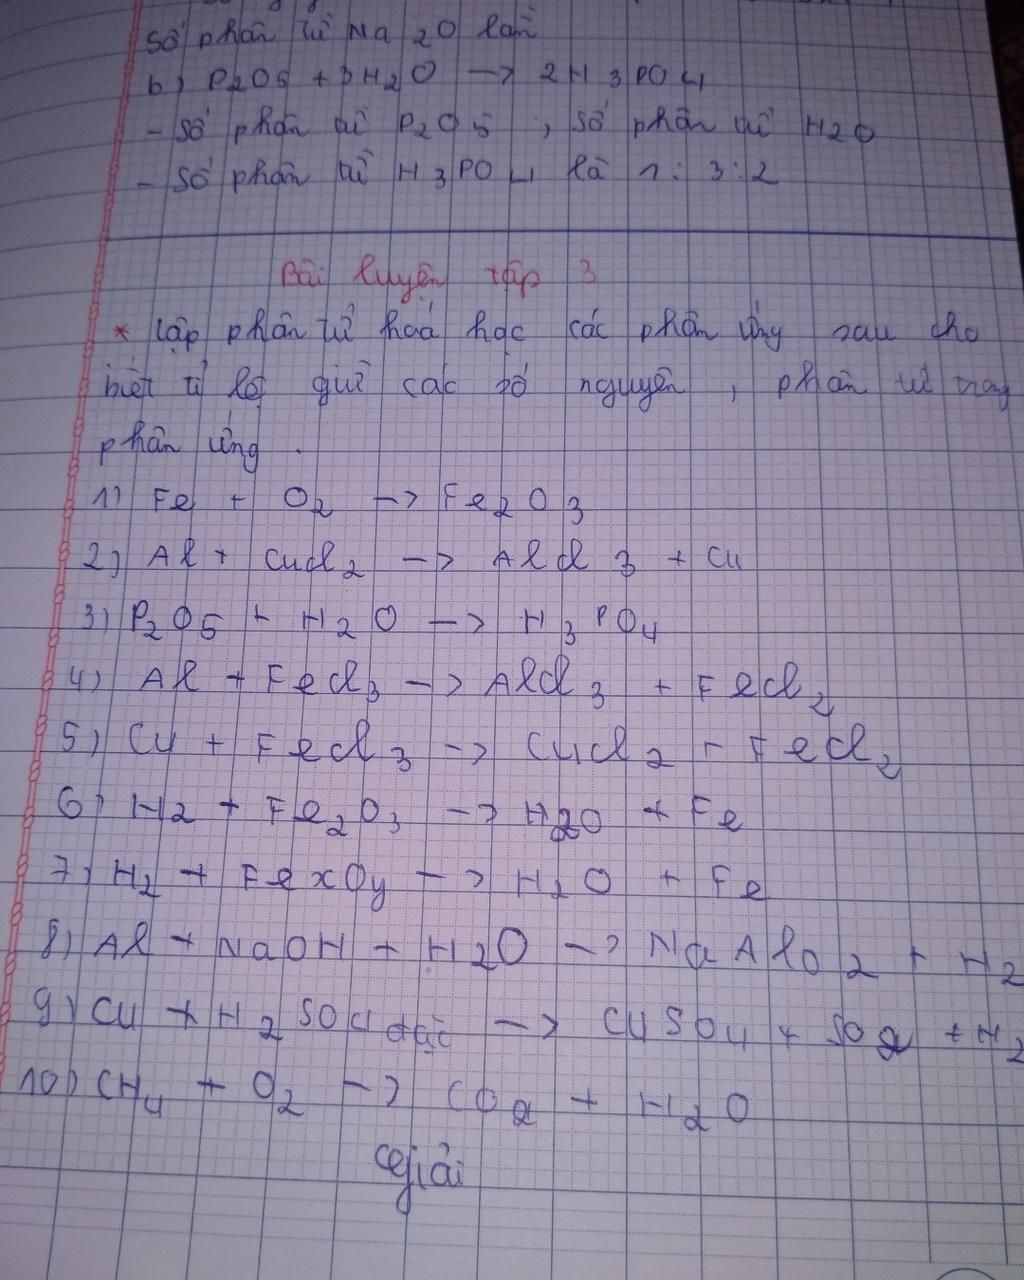 số phần tử Na2O làn
b) P2O5 + 3H2O -> 2H3PO4
- Số phân tử P2O5, số phân tử H2O
- Số phân tử H3PO4 là 1 : 3 : 2
Bài luyện tập 3
* lập phân tử hoá học các phản ứng sau cho
biết tỉ lệ giữ các số nguyên, phân tử trong
phản ứng.
1) Fe + O2 -> Fe2O3
2) Al + CuCl2 -> AlCl3 + Cu
3) P2O5 + H2O -> H3PO4
4) Al + FeCl3 -> AlCl3 + FeCl2
5) Cu + FeCl3 -> CuCl2 + FeCl2
6) H2 + Fe2O3 -> H2O + Fe
7) H2 + FexOy -> H2O + Fe
8) Al + NaOH + H2O -> NaAlO2 + H2
9) Cu + H2SO4 đặc -> CuSO4 + SO2 + H2
10) CH4 + O2 -> CO2 + H2O
Giải